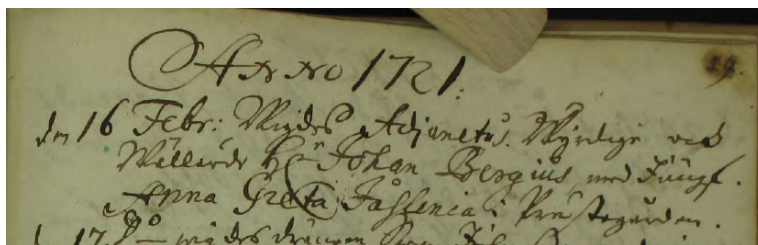 ANNO 1721.
29.
den 16 Febr: Wigdes Adjunctus. Wyrdige och
Wällärde H:r Johan Bergius med Jungf.
Anna Greta i Prästegården.
17 wigdes drängen